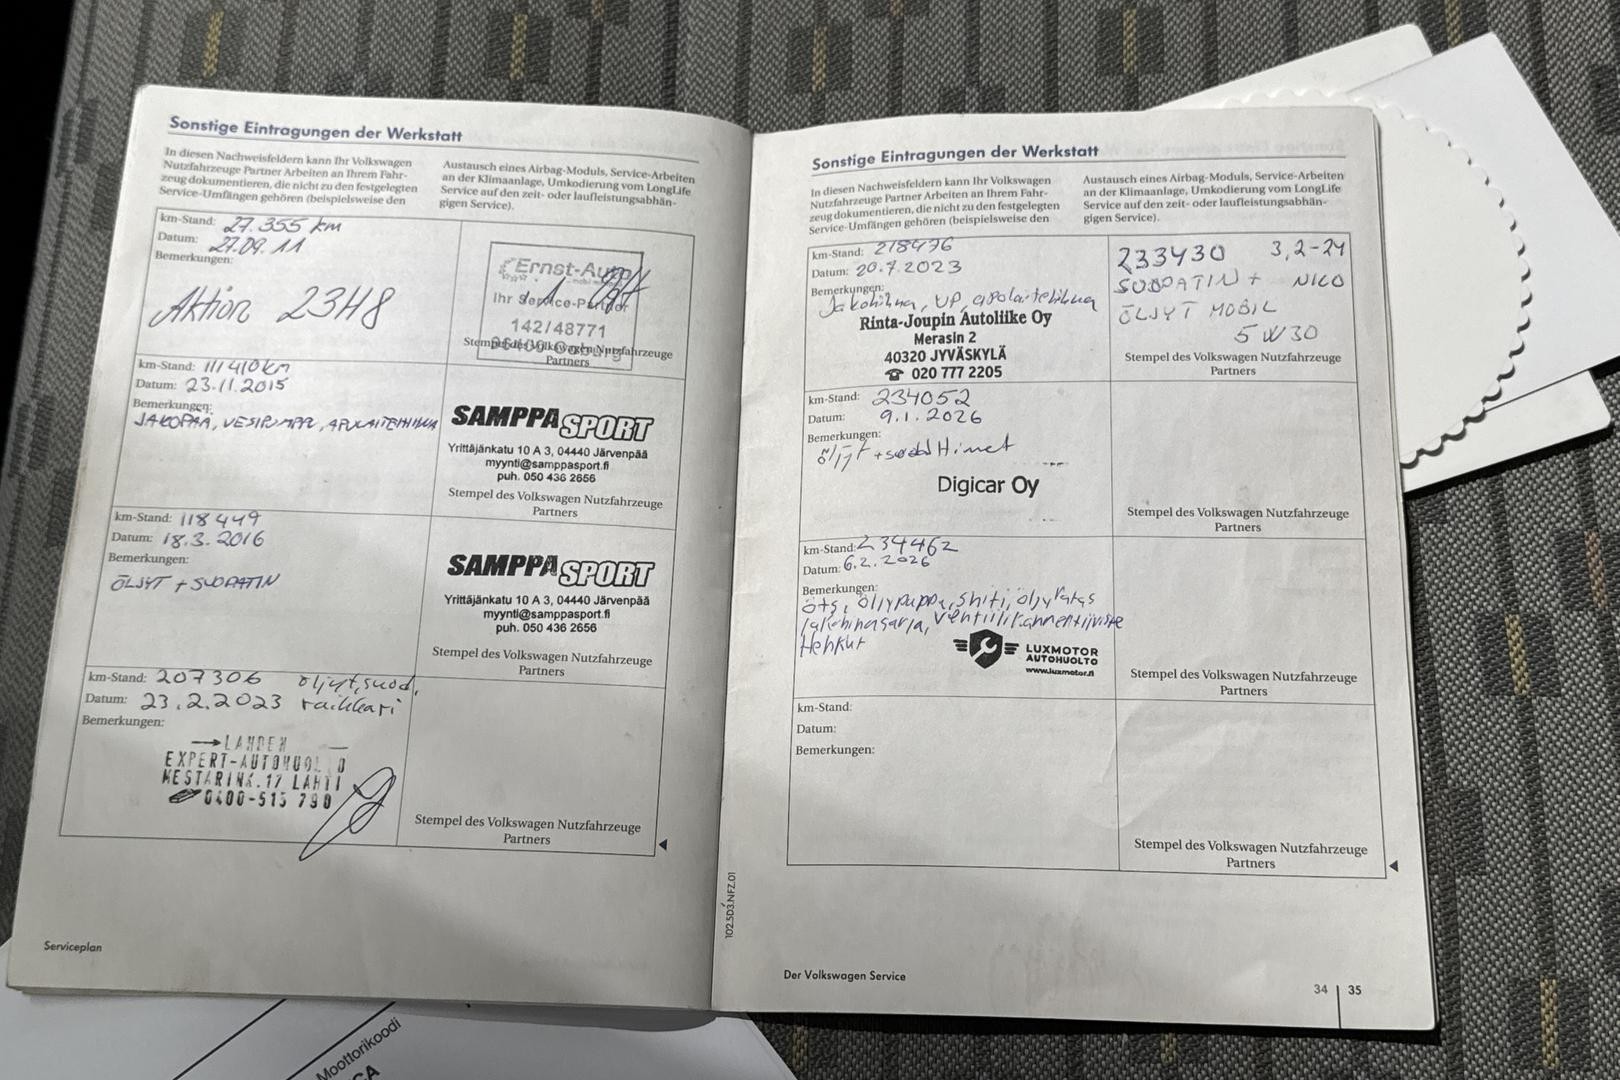 Sonstige Eintragungen der Werkstatt
In diesen Nachweisfeldern kann Ihr Volkswagen
Nutzfahrzeuge Partner Arbeiten an Ihrem Fahr-
zeug dokumentieren, die nicht zu den festgelegten
Service-Umfängen gehören (beispielsweise den
Austausch eines Airbag-Moduls, Service-Arbeiten
an der Klimaanlage, Umkodierung vom LongLife
Service auf den zeit- oder laufleistungsabhän-
gigen Service).
km-Stand: 27.355 km
Datum: 27.09.11
Bemerkungen:
Aktion 23H8
Ernst-Auto
Ihr Service-Partner
142/48771
Stempel des Volkswagen Nutzfahrzeuge
Partners
km-Stand: 111410 km
Datum: 23.11.2015
Bemerkungen:
JAKOPÄÄ, VESIPUMPPU, APULAITEHIHNA
SAMPPA SPORT
Yrittäjänkatu 10 A 3, 04440 Järvenpää
myynti@samppasport.fi
puh. 050 436 2656
Stempel des Volkswagen Nutzfahrzeuge
Partners
km-Stand: 118449
Datum: 18.3.2016
Bemerkungen:
ÖLJYT + SUODATIN
SAMPPA SPORT
Yrittäjänkatu 10 A 3, 04440 Järvenpää
myynti@samppasport.fi
puh. 050 436 2656
Stempel des Volkswagen Nutzfahrzeuge
Partners
km-Stand: 207306 öljyt, suod,
Datum: 23.2.2023 raikkari
Bemerkungen:
LAHDEN
EXPERT-AUTOHUOLTO
MESTARINK. 17 LAHTI
0400-515 790
Stempel des Volkswagen Nutzfahrzeuge
Partners
Serviceplan
102.5D3.NFZ.01
Sonstige Eintragungen der Werkstatt
In diesen Nachweisfeldern kann Ihr Volkswagen
Nutzfahrzeuge Partner Arbeiten an Ihrem Fahr-
zeug dokumentieren, die nicht zu den festgelegten
Service-Umfängen gehören (beispielsweise den
Austausch eines Airbag-Moduls, Service-Arbeiten
an der Klimaanlage, Umkodierung vom LongLife
Service auf den zeit- oder laufleistungsabhän-
gigen Service).
km-Stand: 218476
Datum: 20.7.2023
Bemerkungen:
Jakohihna, VP, apulaitehihna
Rinta-Joupin Autoliike Oy
Merasin 2
40320 JYVÄSKYLÄ
☎ 020 777 2205
233430 3,2-24
SUODATIN + NICO
ÖLJYT MOBIL
5W30
Stempel des Volkswagen Nutzfahrzeuge
Partners
km-Stand: 234052
Datum: 9.1.2026
Bemerkungen:
öljyt + suodattimet
Digicar Oy
Stempel des Volkswagen Nutzfahrzeuge
Partners
km-Stand: 234462
Datum: 6.2.2026
Bemerkungen:
öts, öljypumppu, shiti, öljyratas
jakohihnasarja, venttiilikannentiiviste
Hehkut
LUXMOTOR
AUTOHUOLTO
www.luxmotor.fi
Stempel des Volkswagen Nutzfahrzeuge
Partners
km-Stand:
Datum:
Bemerkungen:
Stempel des Volkswagen Nutzfahrzeuge
Partners
Der Volkswagen Service
34 | 35
Moottorikoodi
CA